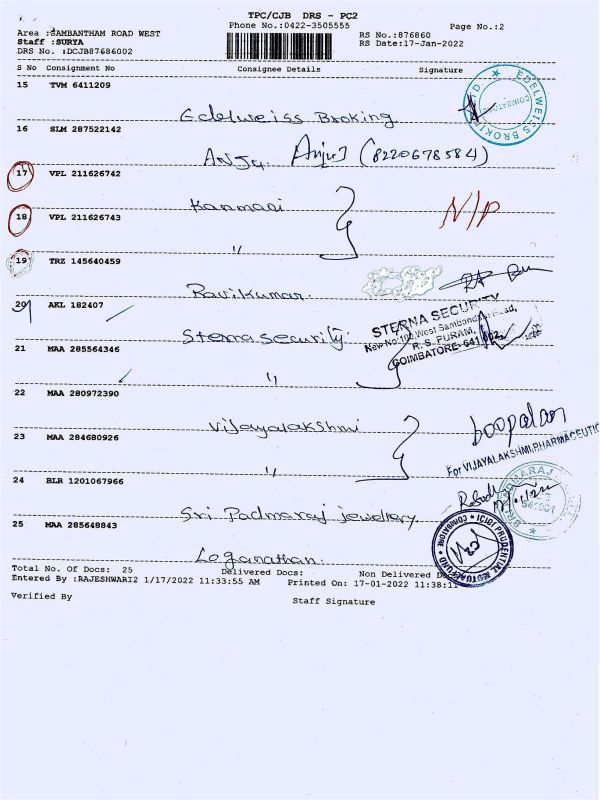 TPC/CJB DRS - PC2
Phone No.:0422-3505555
Page No.:2
Area :SAMBANTHAM ROAD WEST
RS No.:876860
Staff :SURYA
RS Date:17-Jan-2022
DRS No. :DCJB87686002
S No Consignment No Consignee Details Signature
15 TVM 6411209
Edelweiss Broking
EDELWEISS BROKING
COIMBATORE
16 SLM 287522142
ANJU. Anju (8220678584)
17 VPL 211626742
Kanmani N/P
18 VPL 211626743
"
19 TRZ 145640459
Ravikumar
20 AKL 182407
Sterna security
STERNA SECURITY
New No:102, West Sambandam Road,
R. S. PURAM,
COIMBATORE- 641 002
21 MAA 285564346
"
22 MAA 280972390
Vijayalakshmi
boopalan
23 MAA 284680926
"
For VIJAYALAKSHMI PHARMACEUTIC
24 BLR 1201067966
Sri Padmaraj jewellery.
25 MAA 285648843
Loganathan
ICICI PRUDENTIAL MUTUAL FUND * COIMBATORE *
Total No. Of Docs: 25 Delivered Docs: Non Delivered Docs
Entered By :RAJESHWARI2 1/17/2022 11:33:55 AM Printed On: 17-01-2022 11:38:11
Verified By Staff Signature